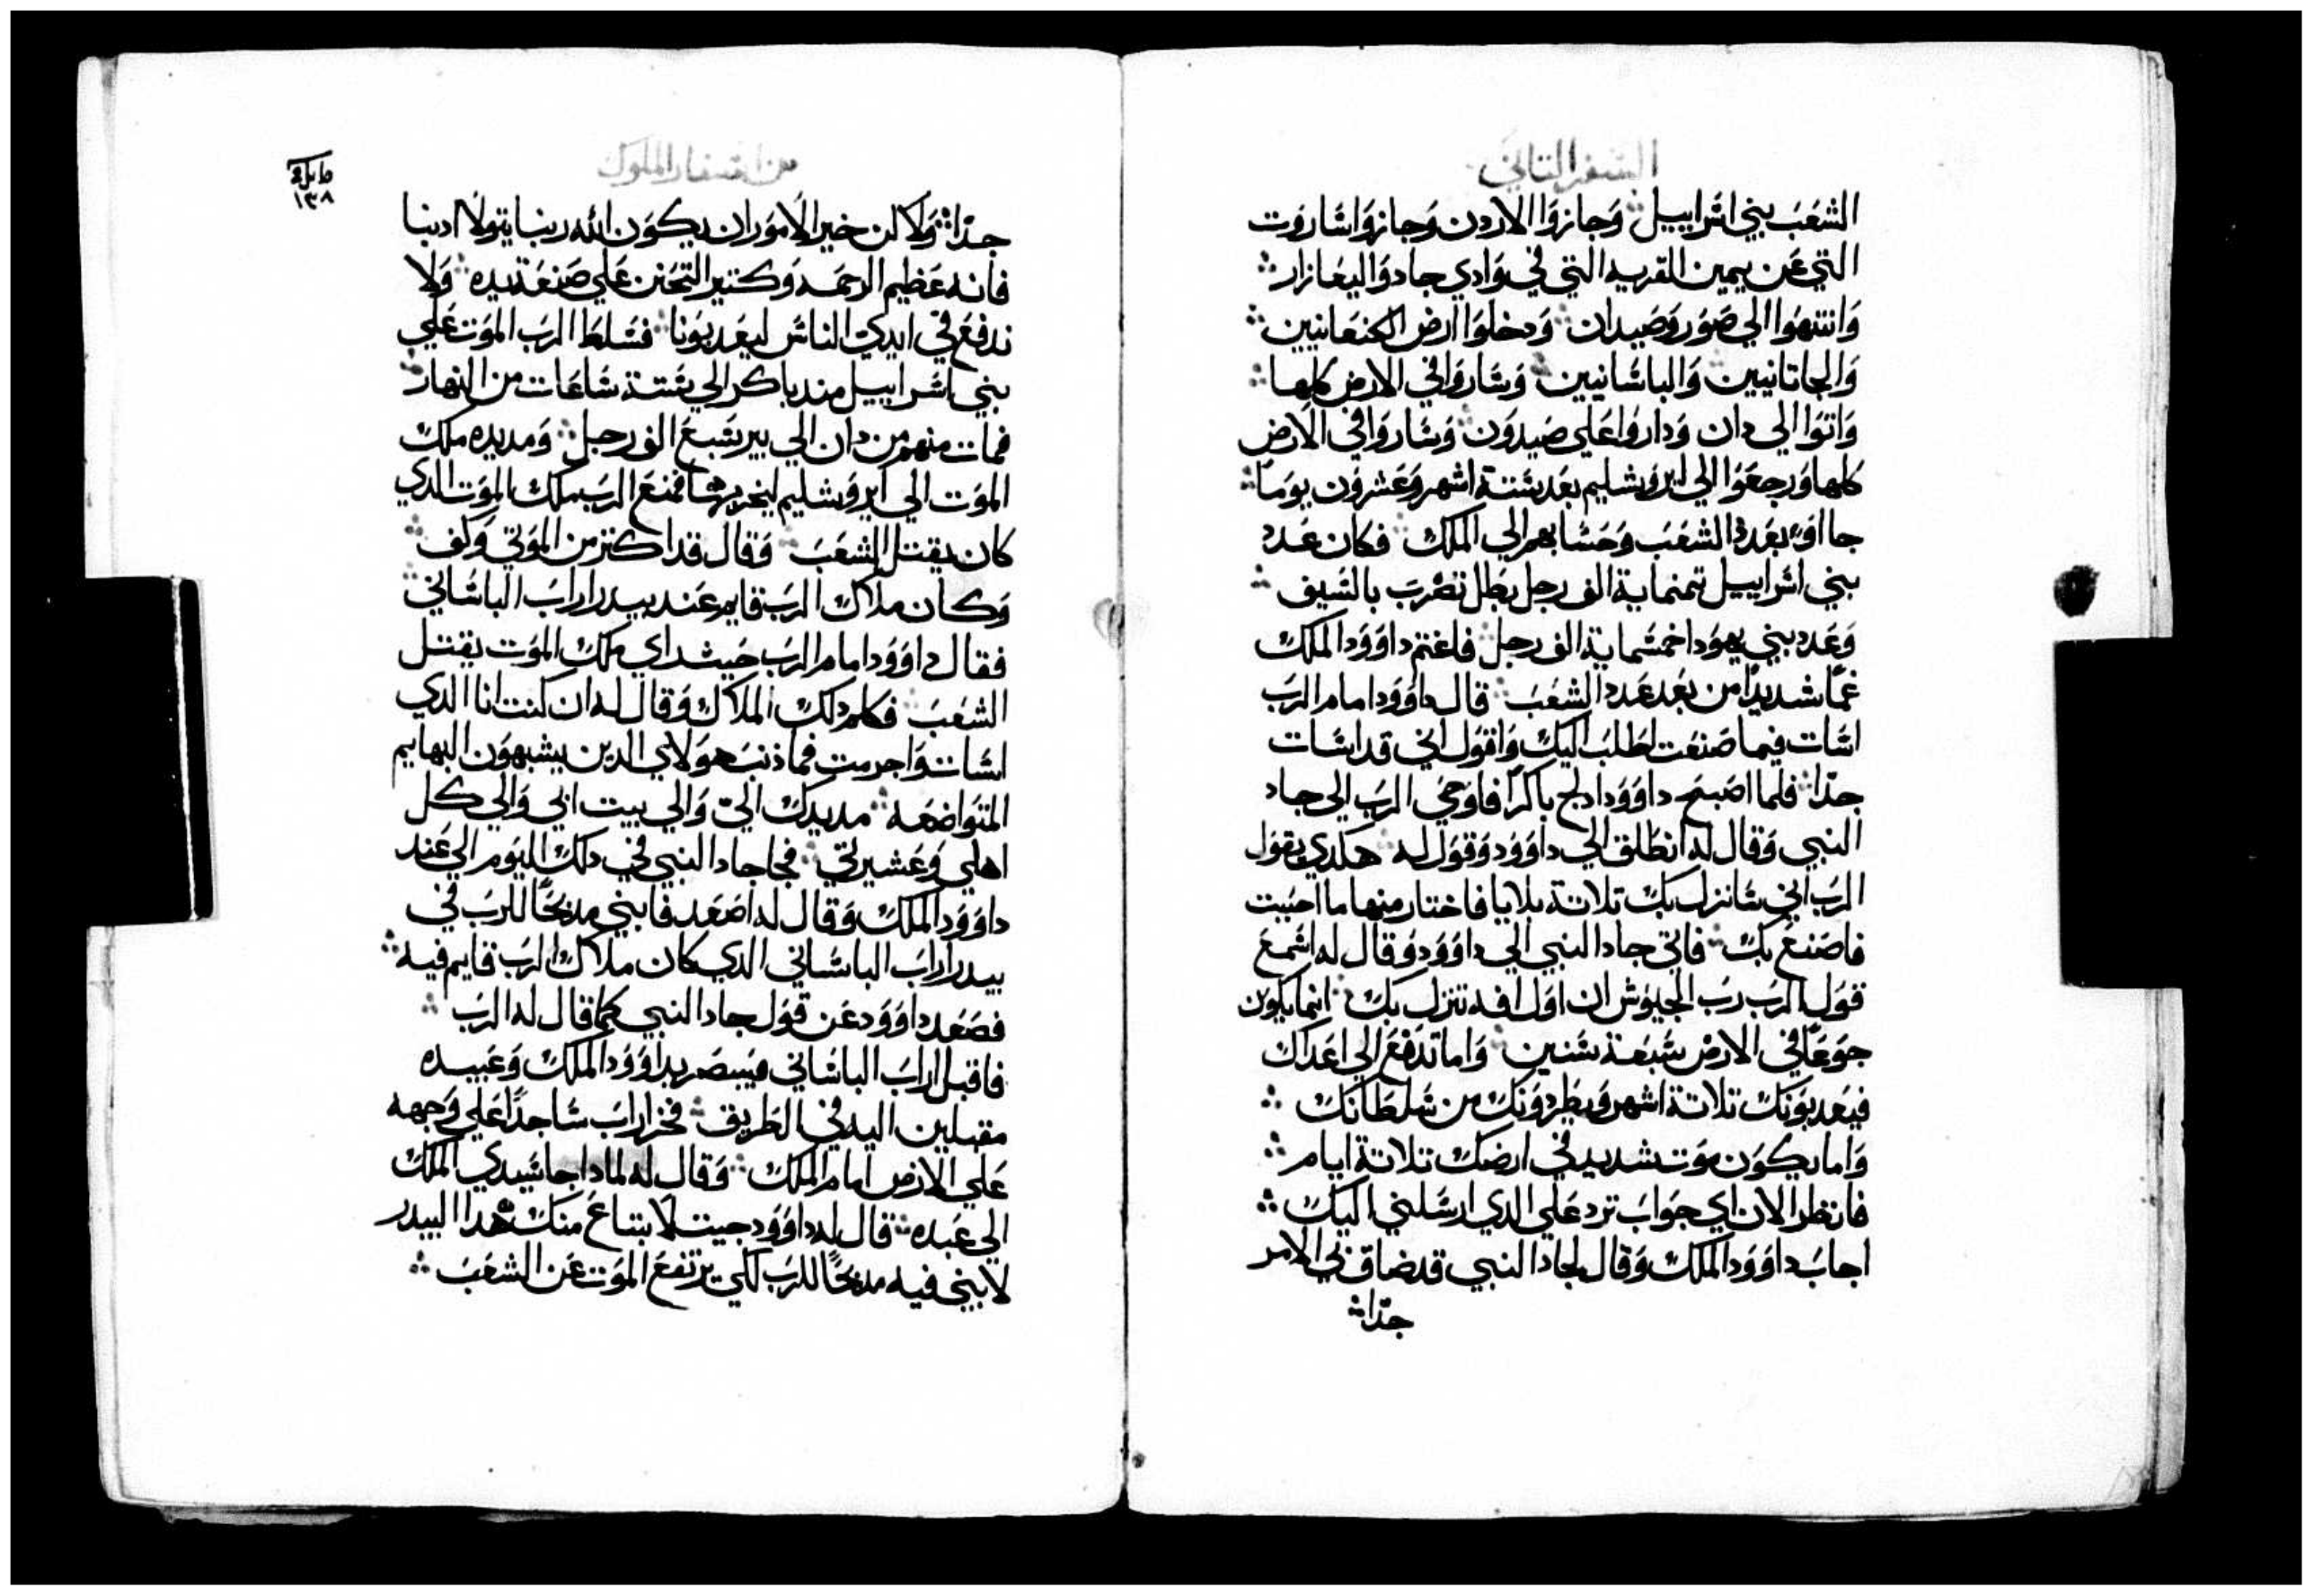 السفر التاني
الشعَب بني اسَراييل ۞ وَجازوَا الاردن وَجازوَا سَاروَت
التي عَن يمين القريه التي في وَادي جاد وَاليعَازار ۞
وَانتهوَا الي صَوَر وَصَيدان ۞ وَدخلوَا ارض الكنعَانيين ۞
وَالجاتانيين وَالباسَانيين ۞ وَسَاروَا في الارض كلها ۞
وَاتوَا الي دان وَداروَا عَلي صَيدوَن ۞ وَسَاروَا في الارض
كلها وَرجعَوَا الي ايروَشليم بعَد سَتة اشهر وَعَشروَن يوَماً ۞
جااوَا بعَدد الشعَبَ وَحَسَابهم الي الملك ۞ فكان عَدد
بني اسَراييل تمنماية الف رجل بطل تضرَب بالسَيف ۞
وَعَدد بني يهوَدا خمسَماية الف رجل ۞ فاغتم داوَوَد الملك
غمّاً شديدًا من بعَد عَدد الشعَبَ ۞ قال داوَوَد امام الربَ
اسَات فيما صَنعَت اطلبَ اليك وَاقوَل اني قد اسَات
جدّا ۞ فلما اصَبحَ داوَوَد ادلج باكرًا فاوَحَي الربَ الي جاد
النبي وَقال له انطلق الي داوَوَد وَقوَل له ۞ هكدي يقوَل
الربَ اني سَانزل بك تلاتة بلايا فاختار منها ما احبَبت
فاصَنعَ بك ۞ فاتي جاد النبي الي داوَوَد وَقال له اسَمعَ
قوَل الربَ ربَ الجيوَش ان اوَل افه تنزل بك ۞ انما يكوَن
جوَعَاً في الارض سَبعَة سَنين ۞ وَاما تدَفعَ الي اعَداك
فيعَدبوَنك تلاتة اشهر وَيطردوَنك من سَلطانك ۞
وَاما يكوَن موَت شديد في ارضك تلاتة ايام ۞
فانظر الان اي جوَابَ ترد عَلي الدي ارسَلني اليك ۞
اجابَ داوَوَد الملك وَقال لجاد النبي قد ضاق بي الامر
جدّا ۞
من اسفار الملوك
١٣٨
جدّا ۞ وَلاكن خير الاموَر ان يكوَن الله ربنا يتوَلا ادبنا
فانه عَظيم الرحمَه وَكتير التحَنن عَلي صَنعَة يده ۞ وَلا
ندفعَ في ايدي الناسَ ليعَدبوَنا ۞ فسَلط الربَ الموَت عَلي
بني اسَراييل مند باكر الي سَتة سَاعَات من النهار ۞
فمات منهم من دان الي بير سَبعَ الف رجل ۞ وَمد يده ملك
الموَت الي ايروَشليم ليخربها فمنعَ الربَ ملك الموَت الدي
كان يقتل الشعَبَ ۞ وَقال قد اكتر من الموَتي وَكف ۞
وَكان ملاك الربَ قايم عَند بيدر ارابَ الباسَاني ۞
فقال داوَوَد امام الربَ حَيث راي ملك الموَت يقتل
الشعَبَ ۞ فكلم دلك الملاك وَقال له ان كنت انا الدي
اسَات وَاجرمت فما ذنبَ هوَلاي الدين يشبهوَن البهايم
المتوَاضعَه ۞ مد يدك اليّ وَالي بيت ابي وَالي كل
اهلي وَعَشيرتي ۞ فجا جاد النبي في دلك اليوَم الي عَند
داوَوَد الملك وَقال له اصَعَد فابني مدبحًا للربَ في
بيدر ارابَ الباسَاني الدي كان ملاك الربَ قايم فيه ۞
فصَعَد داوَوَد عَن قوَل جاد النبي كما قال له الربَ ۞
فاقبل ارابَ الباسَاني فيبصَر بداوَوَد الملك وَعَبيده
مقبلين اليه في الطريق ۞ فخر ارابَ سَاجدًا عَلي وَجهه
عَلي الارض امام الملك ۞ وَقال له لمادا جا سَيدي الملك
الي عَبده ۞ قال له داوَوَد جيت لابتاعَ منك هدا البيدر
لابني فيه مدبحًا للربَ لكي يرتفعَ الموَت عَن الشعَبَ ۞